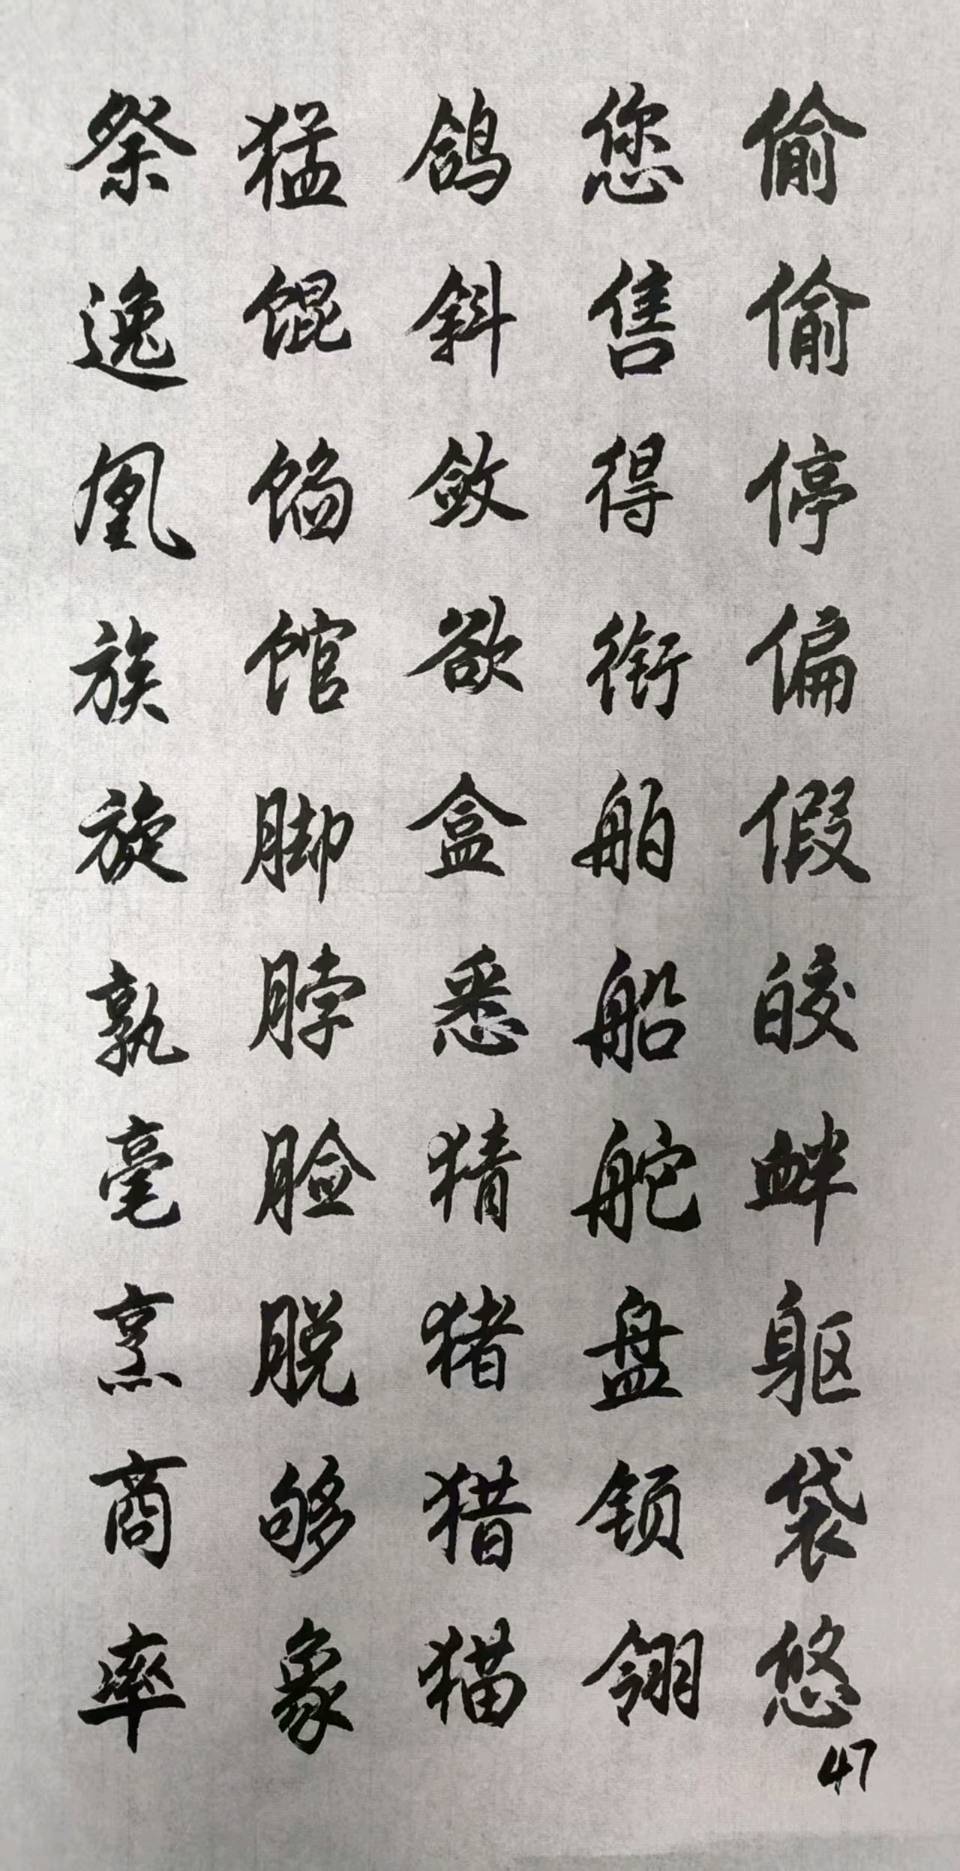 偷偷停偏假皎衅躯袋悠
您售得衔舶船舵盘锁翎
鸽斜敛欲盒悉猜猪猎猫
猛馄馅馆脚脖脸脱够象
祭逸凰族旋孰毫烹商率
47